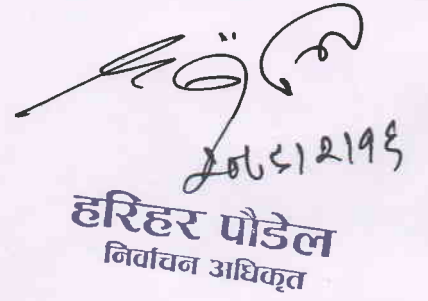 २०८१।२।१६
हरिहर पौडेल
निर्वाचन अधिकृत